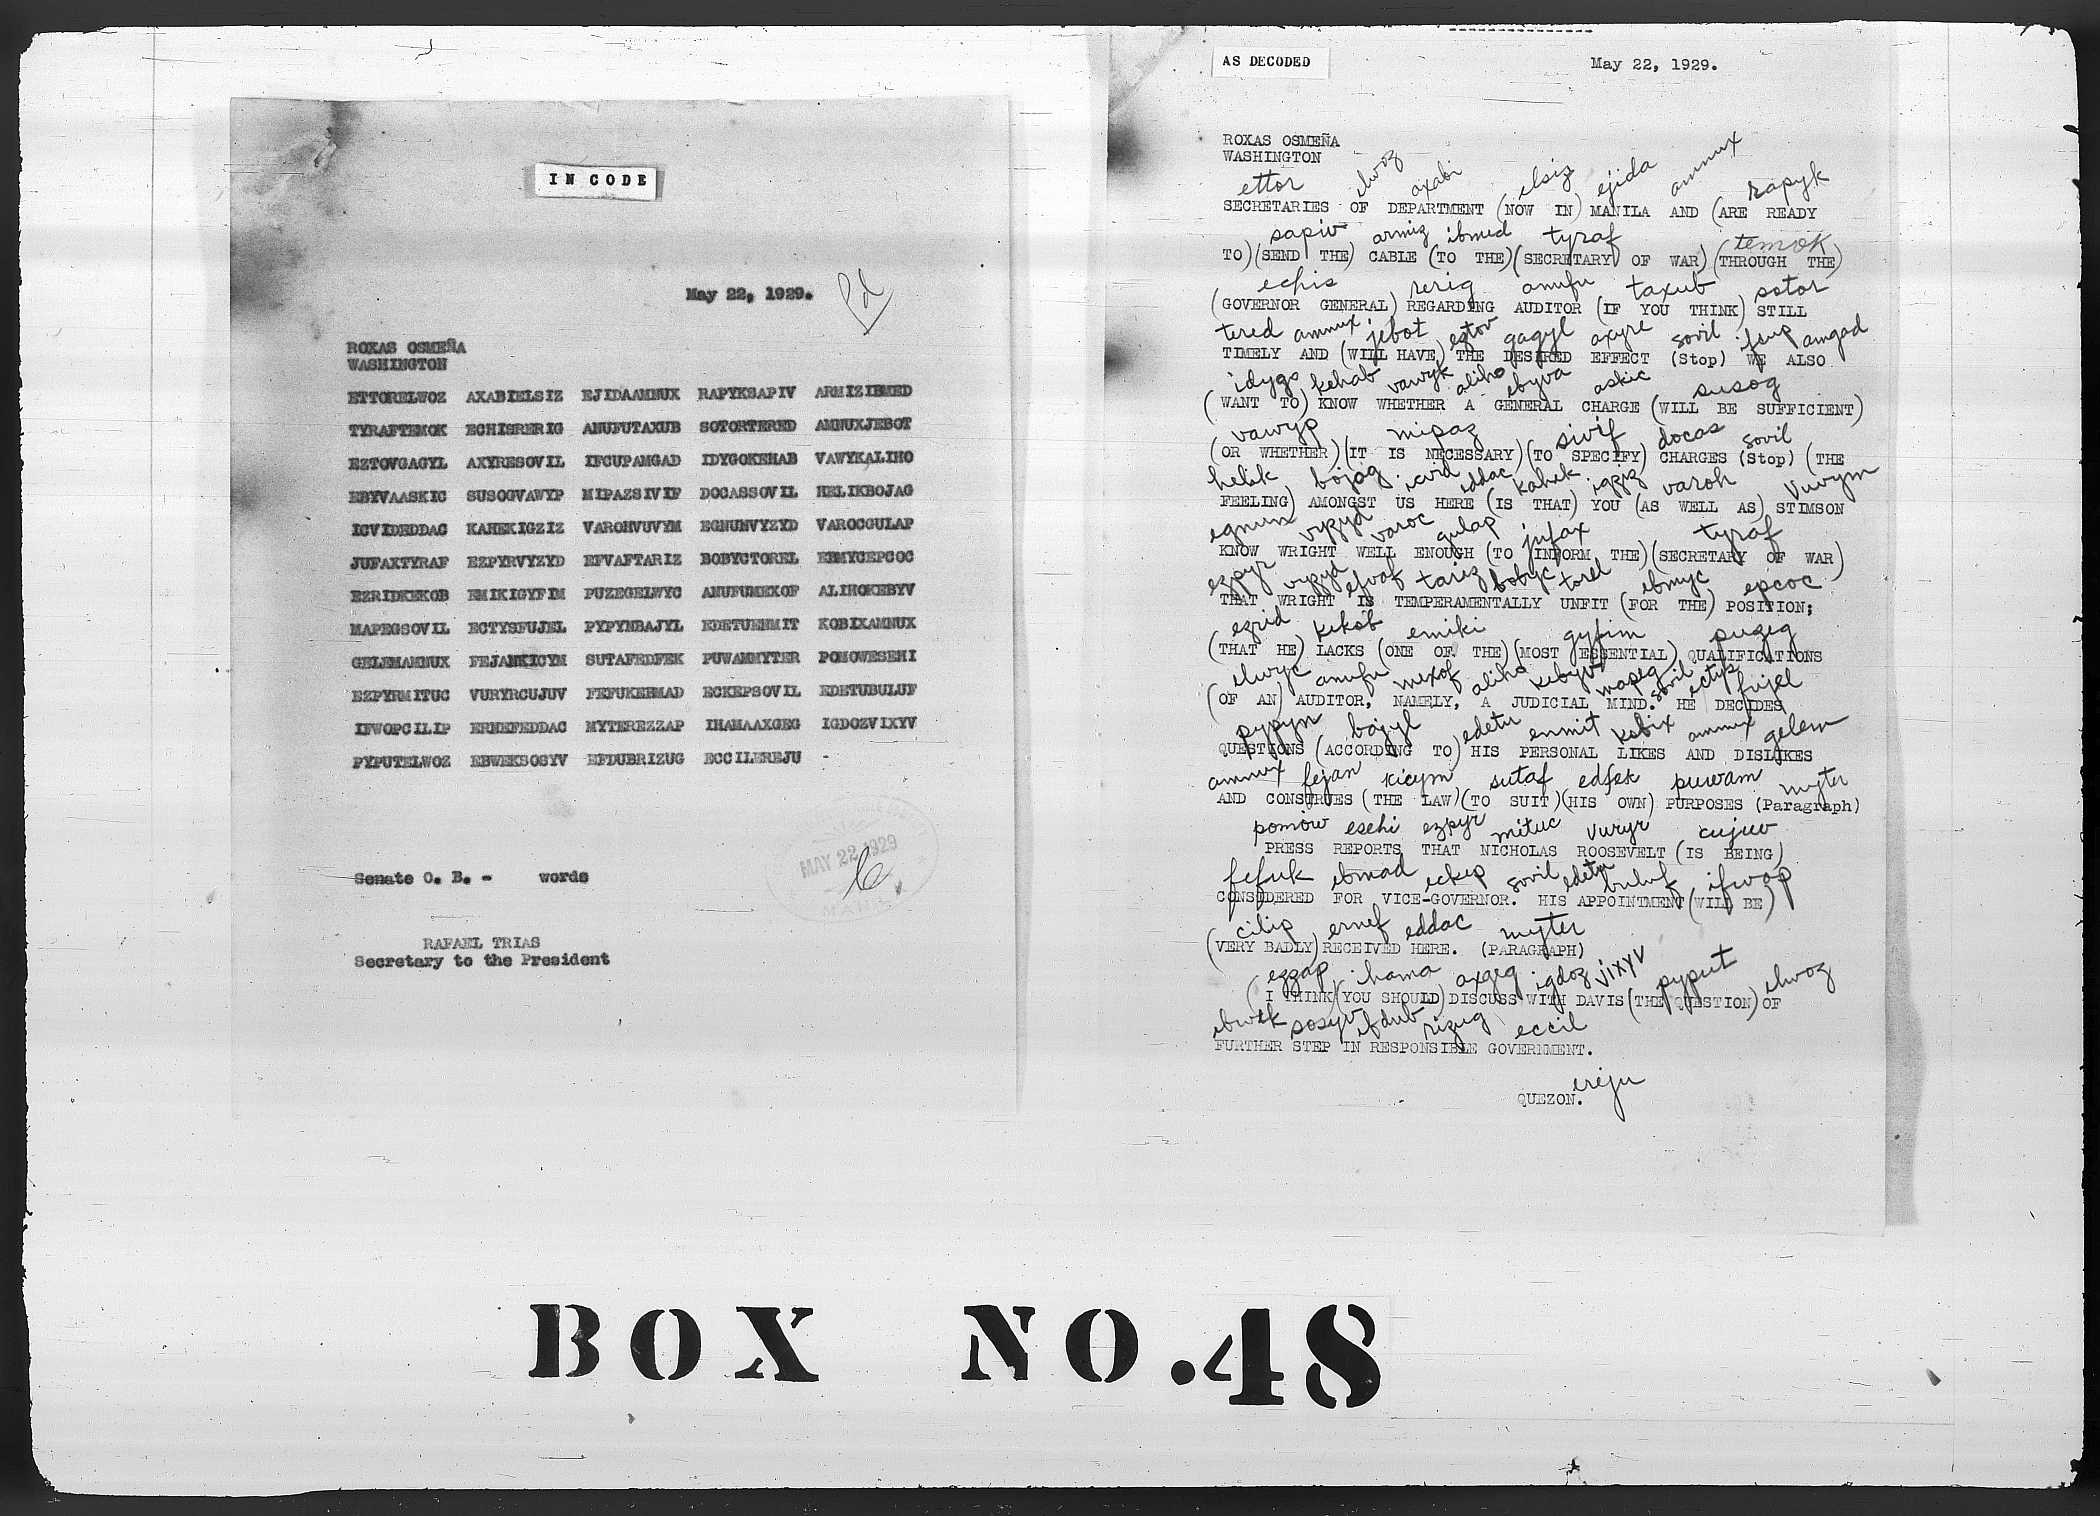 IN CODE
May 22, 1929.
ROXAS OSMEÑA
WASHINGTON
ETTORELWOZ AXABIELSIZ EJIDAAMNUX RAPYKSAPIV ARMIZIBMED
TYRAFTEMOK ECHISRERIG ANUFUTAXUB SOTORTERED AMNUXJEBOT
EZTOVGAGYL AXYRESOVIL IFCUPAMGAD IDYGOKEHAB VAWYKALIHO
EBYVAASKIC SUSOGVAWYP MIPAZSIVIF DOCASSOVIL HELIKBOJAG
ICVIDEDDAC KAHEKIGZIZ VAROHVUVYM EGNUNVYZYD VAROCGULAP
JUFAXTYRAF EZPYRVYZYD EFVAFTARIZ BOBYCTOREL EBMYCEPCOC
EZRIDKEKOB EMIKIGYFIM PUZEGELWYC ANUFUMEXOF ALIHOKEBYV
MAPEGSOVIL ECTYSFUJEL PYPYNBAJYL EDETUENMIT KOBIXAMNUX
GELEMAMNUX FEJANKICYM SUTAFEDFEK PUWAMMYTER POMOWESEHI
EZPYRMITUC VURYRCUJUV FEFUKEBMAD ECKEPSOVIL EDETUBULUF
IFWOPCILIP ERNEFEDDAC MYTEREZZAP IHAMAAXGEG IGDOZVIXYV
PYPUTELWOZ EBWEKSOSYV EFDUBRIZUG ECCILEREJU -
MAY 22 1929
Senate O. B. - words
RAFAEL TRIAS
Secretary to the President
AS DECODED
May 22, 1929.
ROXAS OSMEÑA
WASHINGTON
ettor elwoz axabi elsiz ejida amnux rapyk
SECRETARIES OF DEPARTMENT (NOW IN) MANILA AND (ARE READY
sapiv armiz ibmed tyraf temok
TO)(SEND THE) CABLE (TO THE)(SECRETARY OF WAR)(THROUGH THE)
echis rerig anufu taxub sotor
(GOVERNOR GENERAL) REGARDING AUDITOR (IF YOU THINK) STILL
tered amnux jebot eztov gagyl axyre sovil ifcup amgad
TIMELY AND (WILL HAVE) THE DESIRED EFFECT (Stop) WE ALSO
idygo kehab vawyk aliho ebyva askic susog
(WANT TO) KNOW WHETHER A GENERAL CHARGE (WILL BE SUFFICIENT)
vawyp mipaz sivif docas sovil
(OR WHETHER)(IT IS NECESSARY)(TO SPECIFY) CHARGES (Stop) (THE
helik bojag icvid eddac kahek igziz varoh vuvym
FEELING) AMONGST US HERE (IS THAT) YOU (AS WELL AS) STIMSON
egnun vyzyd varoc gulap jufax tyraf
KNOW WRIGHT WELL ENOUGH (TO INFORM THE)(SECRETARY OF WAR)
ezpyr vyzyd efvaf tariz bobyc torel ebmyc epcoc
THAT WRIGHT IS TEMPERAMENTALLY UNFIT (FOR THE) POSITION;
ezrid kekob emiki gyfim puzeg
(THAT HE) LACKS (ONE OF THE)(MOST ESSENTIAL) QUALIFICATIONS
elwyc anufu mexof aliho kebyv mapeg sovil ectys fujel
(OF AN) AUDITOR, NAMELY, A JUDICIAL MIND. HE DECIDES
pypyn bajyl edetu enmit kobix amnux gelem
QUESTIONS (ACCORDING TO) HIS PERSONAL LIKES AND DISLIKES
amnux fejan kicym sutaf edfek puwam myter
AND CONSTRUES (THE LAW)(TO SUIT)(HIS OWN) PURPOSES (Paragraph)
pomow esehi ezpyr mituc vuryr cujuv
PRESS REPORTS THAT NICHOLAS ROOSEVELT (IS BEING)
fefuk ebmad eckep sovil edetu buluf ifwop
CONSIDERED FOR VICE-GOVERNOR. HIS APPOINTMENT (WILL BE)
cilip ernef eddac myter
(VERY BADLY) RECEIVED HERE. (PARAGRAPH)
ezzap ihama axgeg igdoz vixyv pyput elwoz
(I THINK)(YOU SHOULD) DISCUSS WITH DAVIS (THE QUESTION) OF
ebwek sosyv efdub rizug eccil
FURTHER STEP IN RESPONSIBLE GOVERNMENT.
ereju
QUEZON.
BOX NO. 48